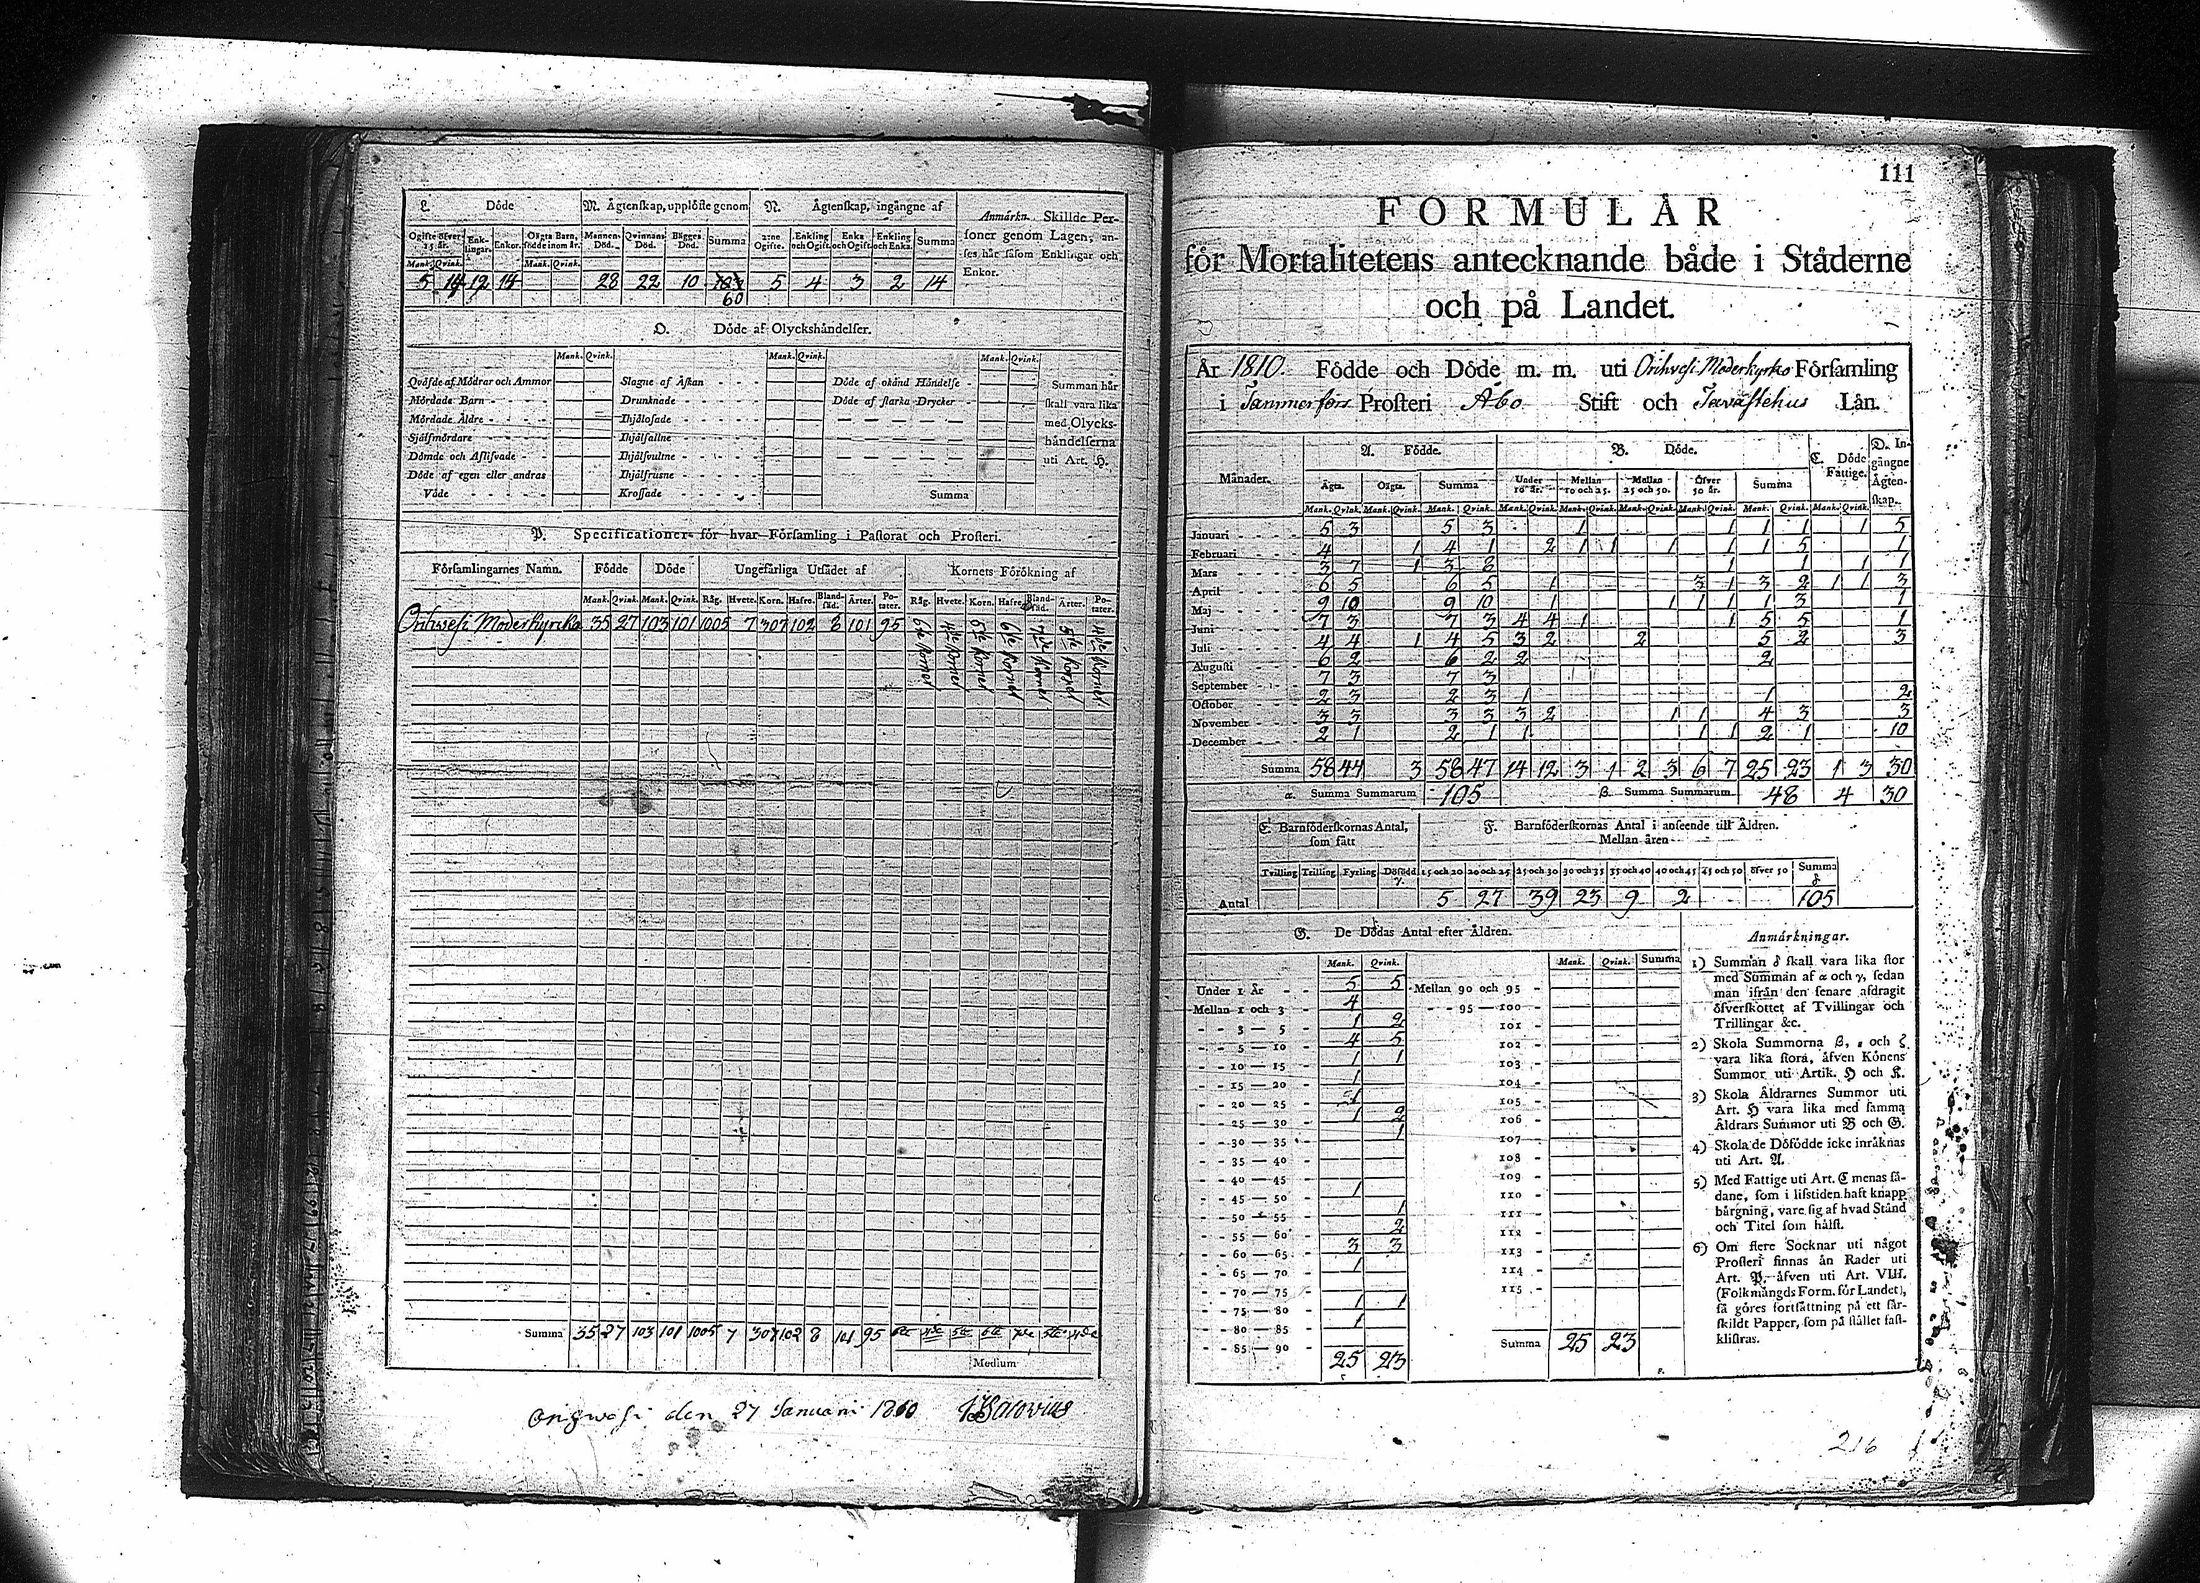 L. Döde
M. Ägtenskap, upplöste genom
N. Ägtenskap, ingångne af
Anmärkn. Skillde Per-
soner genom Lagen, an-
ses här såsom Enklingar och
Enkor.
Ogifte öfver 15 år. Enklingar. Enkor. Oägta Barn, födde inom år.
Mannen Död. Qvinnan Död. Bägges Död. Summa
2:ne Ogifte. Enkling och Ogift. Enka och Ogift. Enkling och Enka. Summa
Mank. Qvink. Mank. Qvink.
5 14 12 14 28 22 10 60 5 4 3 2 14
O. Döde af Olyckshändelser.
Mank. Qvink. Mank. Qvink. Mank. Qvink.
Qväfde af Mödrar och Ammor Slagne af Åskan Döde af okänd Händelse Summan här
Mördade Barn Drunknade Döde af starka Drycker skall vara lika
Mördade Äldre Ihjälosade med Olycks-
Sjålfmördare Ihjälfallne händelserna
Dömde och Aflifvade Ihjälsvultne uti Art. H.
Döde af egen eller andras Ihjälfrusne
Våde Krossade Summa
P. Specificationer för hvar Församling i Pastorat och Prosteri.
Församlingarnes Namn. Födde Döde Ungefärliga Utsädet af Kornets Förökning af
Mank. Qvink. Mank. Qvink. Råg. Hvete. Korn. Hafre. Blandsäd. Ärter. Potater. Råg. Hvete. Korn. Hafre. Blandsäd. Ärter. Potater.
Orihvesi Moderkyrcka 35 27 103 101 1005 7 307 102 8 101 95 6te Kornet 4de Kornet 5te Kornet 6te Kornet 7de Kornet 5te Kornet 4de Kornet
Summa 35 27 103 101 1005 7 307 102 8 101 95 6te 4de 5te 6te 7de 5te 4de
Medium
Orihwesi den 27 Januari 1810
111
FORMULÄR
för Mortalitetens antecknande både i Städerne
och på Landet.
År 1810 Födde och Döde m. m. uti Orihvesi Moderkyrko Församling
i Tammerfors Prosteri Åbo Stift och Tavastehus Län.
Månader. A. Födde. B. Döde. C. Döde Fattige. D. Ingångne Ägtenskap.
Ägta. Oägta. Summa Under 10 år. Mellan 10 och 25. Mellan 25 och 50. Öfver 50 år. Summa
Mank. Qvink. Mank. Qvink. Mank. Qvink. Mank. Qvink. Mank. Qvink. Mank. Qvink. Mank. Qvink. Mank. Qvink. Mank. Qvink.
Januari 5 3 5 3 1 1 1 1 1 5
Februari 4 1 4 1 2 1 1 1 1 1 5 1
Mars 3 7 1 3 8 1 1 1 1
April 6 5 6 5 1 3 1 3 2 1 1 3
Maj 9 10 9 10 1 1 1 1 1 3 1
Juni 7 3 7 3 4 4 1 1 5 5 1
Juli 4 4 1 4 5 3 2 2 5 2 3
Augusti 6 2 6 2 2 2
September 7 3 7 3
October 2 3 2 3 1 1 2
November 3 3 3 3 3 2 1 1 4 3 3
December 2 1 2 1 1 1 1 2 1 10
Summa 58 44 3 58 47 14 12 3 1 2 3 6 7 25 23 1 3 30
α. Summa Summarum 105 β. Summa Summarum 48 4 30
E. Barnföderskornas Antal, som fått
F. Barnföderskornas Antal i anseende till Åldren.
Mellan åren
Tvilling Trilling Fyrling Dödfödd γ. 15 och 20 20 och 25 25 och 30 30 och 35 35 och 40 40 och 45 45 och 50 öfver 50 Summa δ
Antal 5 27 39 23 9 2 105
G. De Dödas Antal efter Åldren.
Mank. Qvink. Mank. Qvink. Summa
Under 1 År 5 5 Mellan 90 och 95
Mellan 1 och 3 4 95 — 100
3 — 5 1 2 101
5 — 10 4 5 102
10 — 15 1 1 103
15 — 20 1 104
20 — 25 1 105
25 — 30 1 2 106
30 — 35 1 107
35 — 40 108
40 — 45 109
45 — 50 1 110
50 — 55 1 111
55 — 60 2 112
60 — 65 3 3 113
65 — 70 1 114
70 — 75 115
75 — 80 1 1
80 — 85 1
85 — 90 Summa 25 23
25 23
Anmärkningar.
1) Summan δ skall vara lika stor
med Summan af α och γ, sedan
man ifrån den senare afdragit
öfverskottet af Tvillingar och
Trillingar &c.
2) Skola Summorna β, ε och ζ
vara lika stora, äfven Könens
Summor uti Artik. H och K.
3) Skola Åldrarnes Summor uti
Art. H vara lika med samma
Åldrars Summor uti B och G.
4) Skola de Döfödde icke inräknas
uti Art. A.
5) Med Fattige uti Art. C menas så-
dane, som i lifstiden haft knapp
bärgning, vare sig af hvad Stånd
och Titel som hälst.
6) Om flere Socknar uti något
Prosteri finnas än Rader uti
Art. P. äfven uti Art. VIII.
(Folkmängds Form. för Landet),
så göres fortsättning på ett sär-
skildt Papper, som på stället fast-
klistras.
216